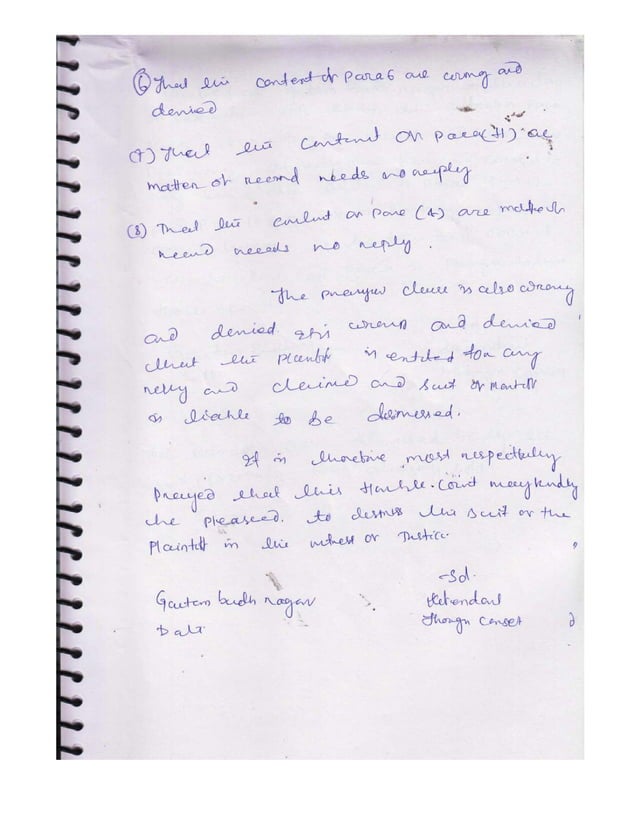 (6) That the content of para 6 are wrong and
denied
(7) That the content of para (7) are
matter of record needs no reply
(8) That the content of para (8) are matter of
record needs no reply.
The prayer clause is also wrong
and denied. It is wrong and denied
that the plaintiff is entitled for any
relly and claimed and suit of plaintiff
is liable to be dismissed.
It is therefore most respectfully
Prayed that this Hon'ble Court may kindly
be pleased. to dismiss the suit of the
Plaintiff in the interest of Justice.
-Sd.
Gautam budh nagar Defendant
Date Through Counsel